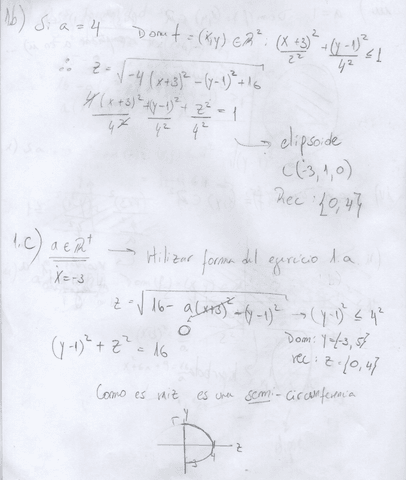 1b) Si a = 4 Dom f = (x,y) ∈ R² : (x+3)²/2² + (y-1)²/4² ≤ 1
∴ z = √(-4(x+3)² - (y-1)² + 16)
4(x+3)²/4² + (y-1)²/4² + z²/4² = 1
→ elipsoide
C(-3,1,0)
Rec : {0,4}
1.c) a ∈ R⁺ → Utilizar forma del ejercicio 1.a
x = -3
z = √(16 - a(x+3)² - (y-1)²) → (y-1)² ≤ 4²
0
(y-1)² + z² = 16
Dom: y = {-3, 5}
rec: z = {0,4}
Como es raiz es una semi-circunferencia
y
5
4 z
-3